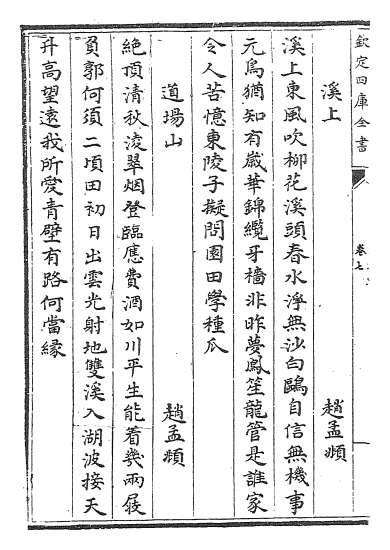 欽定四庫全書
卷七
溪上
趙孟頫
溪上東風吹柳花溪頭春水淨無沙白鷗自信無機事
元鳥猶知有歲華錦纜牙檣非昨夢鳳笙龍管是誰家
令人苦憶東陵子擬問園田學種瓜
道場山
趙孟頫
絶頂清秋淩翠烟登臨應費酒如川平生能着幾兩屐
負郭何須二頃田初日出雲光射地雙溪入湖波接天
升高望遠我所愛青壁有路何當緣